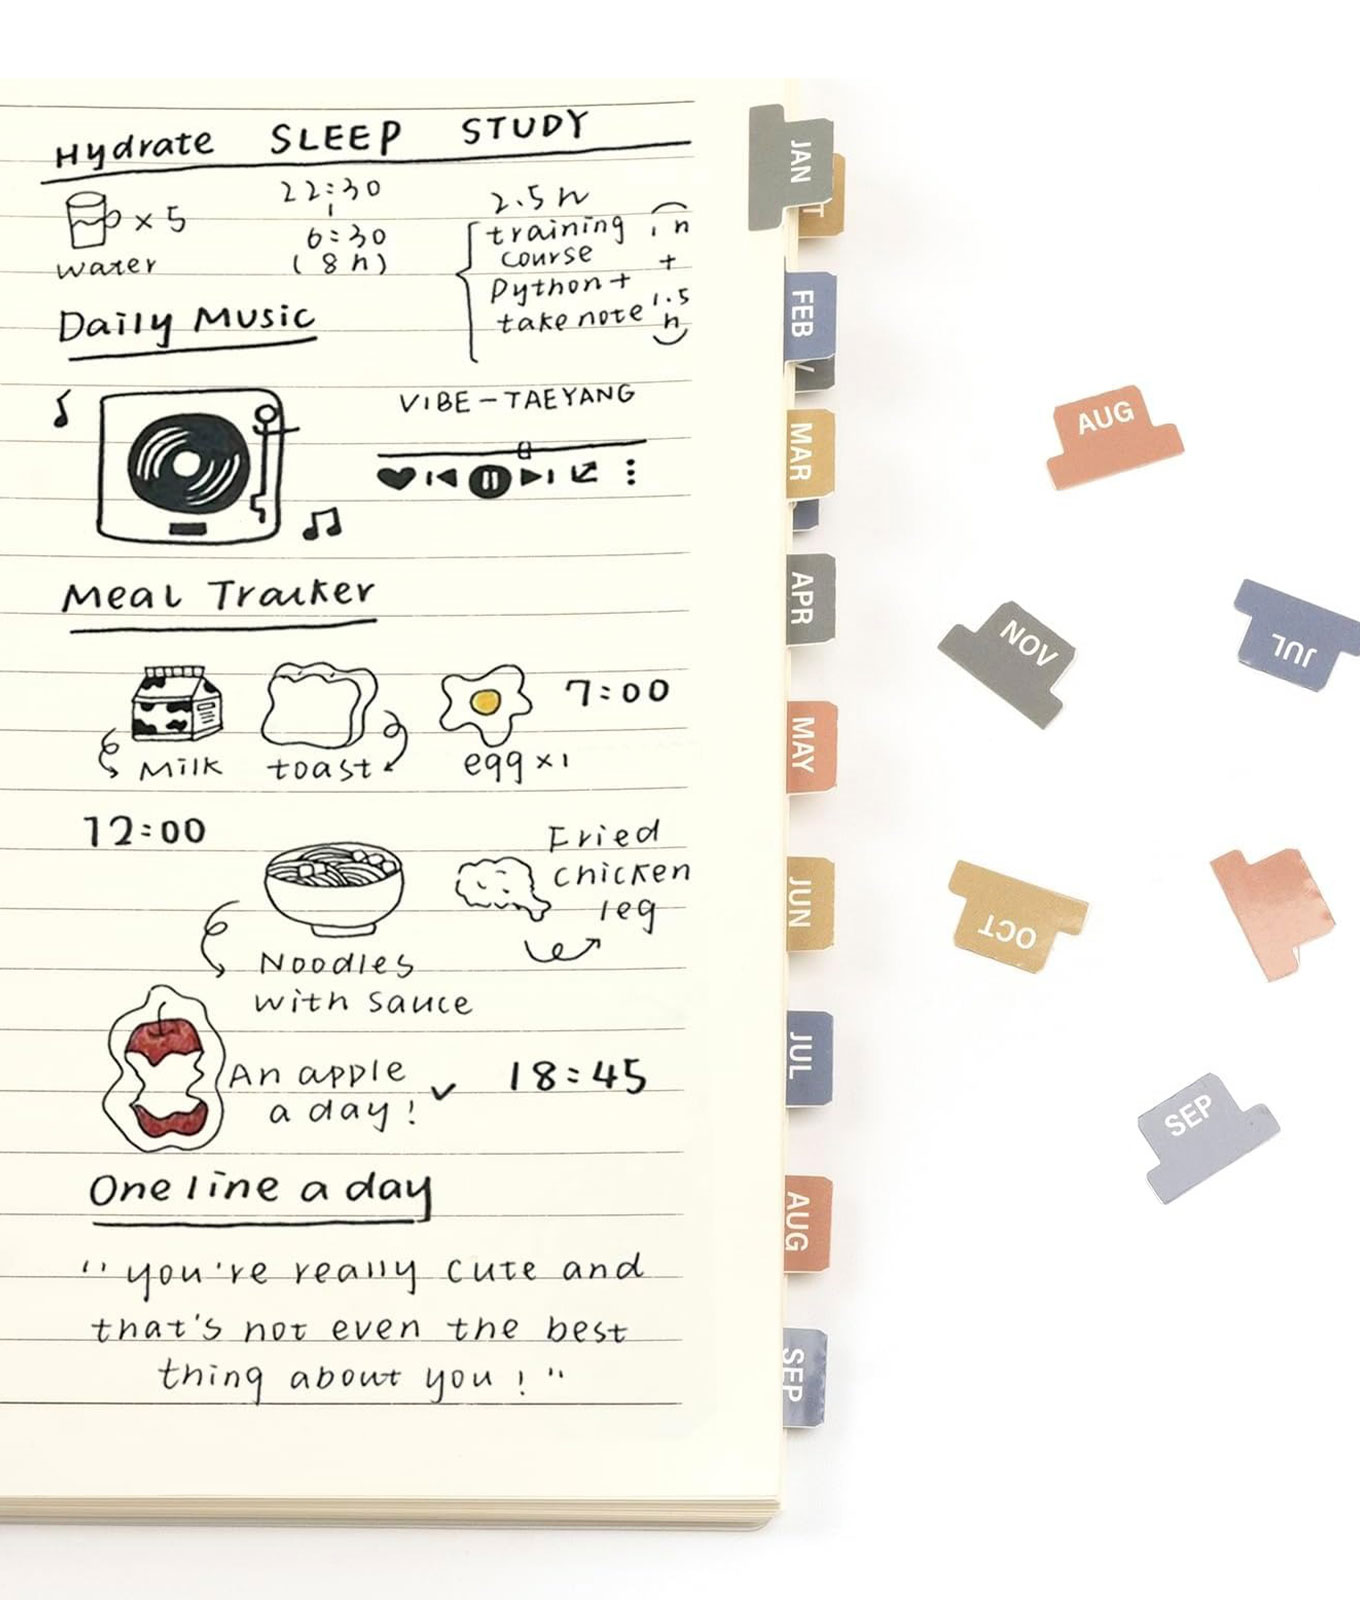 Hydrate SLEEP STUDY
× 5
water
22:30
6:30
(8h)
2.5 h
training
course
Python +
take note
1 h
+
1.5
h
Daily Music
VIBE – TAEYANG
Meal Tracker
7:00
Milk toast egg × 1
12:00
Fried
chicken
leg
Noodles
with sauce
An apple
a day!
18:45
One line a day
"you're really cute and
that's not even the best
thing about you!"
JAN
FEB
MAR
APR
MAY
JUN
JUL
AUG
SEP
AUG
NOV
JUL
OCT
SEP